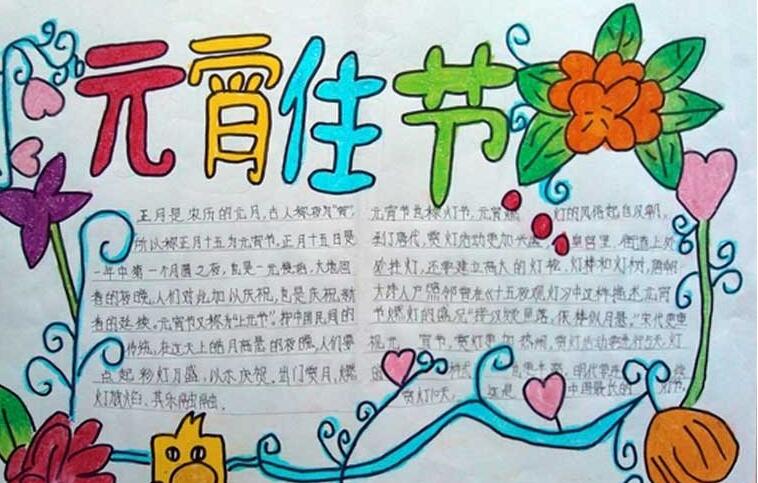 元宵佳节
正月是农历的元月,古人称夜为"宵",
所以称正月十五为元宵节。正月十五日是
一年中第一个月圆之夜,也是一元复始,大地回
春的夜晚,人们对此加以庆祝,也是庆祝新
春的延续。元宵节又称为"上元节"。按中国民间的
传统,在这天上皓月高悬的夜晚,人们要
点起彩灯万盏,以示庆贺。出门赏月,燃
灯放焰,其乐融融。
元宵节也称灯节,元宵燃灯的风俗起自汉朝。
到了唐代,赏灯活动更加兴盛,皇宫里、街道上处
处挂灯,还要建立高大的灯轮、灯楼和灯树,唐朝
大诗人卢照邻曾在《十五夜观灯》中这样描述元宵
节燃灯的盛况"接汉疑星落,依楼似月悬。"宋代更重
视元宵节,赏灯更加热闹,赏灯活动要进行5天,灯
的样式也更丰富。明代要连
赏灯10天,这是中国最长的灯节,